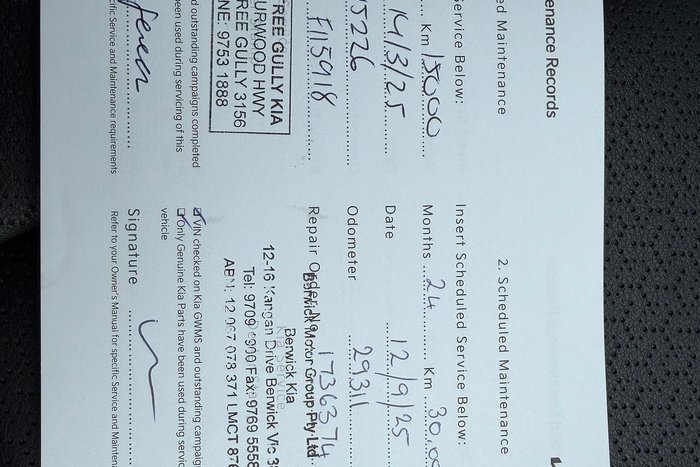 enance Records
ed Maintenance
ervice Below:
Km 15000
14/3/25
5226
F115918
REE GULLY KIA
URWOOD HWY
REE GULLY 3156
NE: 9753 1888
d outstanding campaigns completed
een used during servicing of this
cific Service and Maintenance requirements
2. Scheduled Maintenance
Insert Scheduled Service Below:
Months 24 Km 30,0
Date 12/9/25
Odometer 29311
Repair Order No 1736374
Berwick Motor Group Pty Ltd
Berwick Kia
12-16 Kangan Drive Berwick Vic 3
Tel: 9709 Fax: 9769 5558
ABN: 12 007 078 371 LMCT 876
VIN checked on Kia GWMS and outstanding campaig
Only Genuine Kia Parts have been used during servic
vehicle
Signature
Refer to your Owner's Manual for specific Service and Mainten